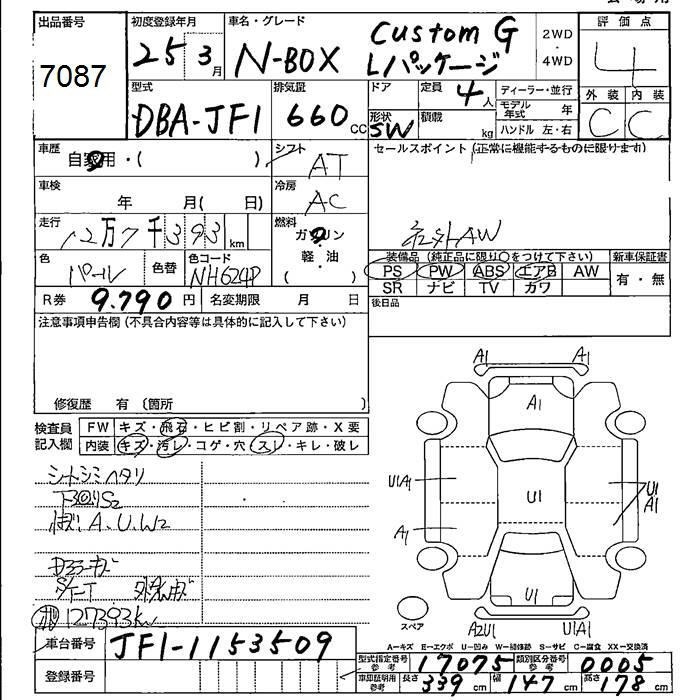 出品番号 7087
初度登録年月 25 3月
車名・グレード N-BOX Custom G Lパッケージ
2WD・4WD
評価点 4
外装 C 内装 C
型式 DBA-JF1
排気量 660cc
ドア
定員 4人
ディーラー・並行
モデル年式 年
形状 SW
積載 kg
ハンドル 左・右
車歴 自家用・( )
シフト AT
セールスポイント(正常に機能するものに限ります)
社外AW
車検 年 月( 日)
冷房 AC
走行 12万7千393km
燃料 ガソリン 軽・油 ( )
色 パール
色替
色コード NH624P
装備品(純正品に限り〇をつけて下さい)
PS PW ABS エアB AW
SR ナビ TV カワ
新車保証書 有・無
R券 9,790円
名変期限 月 日
後日品
注意事項申告欄(不具合内容等は具体的に記入して下さい)
修復歴 有 (箇所
検査員記入欄
FW キズ・飛石・ヒビ割・リペア跡・X要
内装 キズ・汚レ・コゲ・穴・スレ・キレ・破レ
シートシミヘタリ
下回りS2
A.U.W2
127393km
A1 A1
A1
U1A1 U1 U1 A1
A1
U1
スペア
A2U1 U1A1
A=キズ E=エクボ U=凹み W=補修跡 S=サビ C=腐食 XX=交換済
車台番号 JF1-1153509
登録番号
型式指定番号 参考 17075
類別区分番号 参考 0005
車庫証明用 参考 長さ 339cm 幅 147cm 高さ 178cm